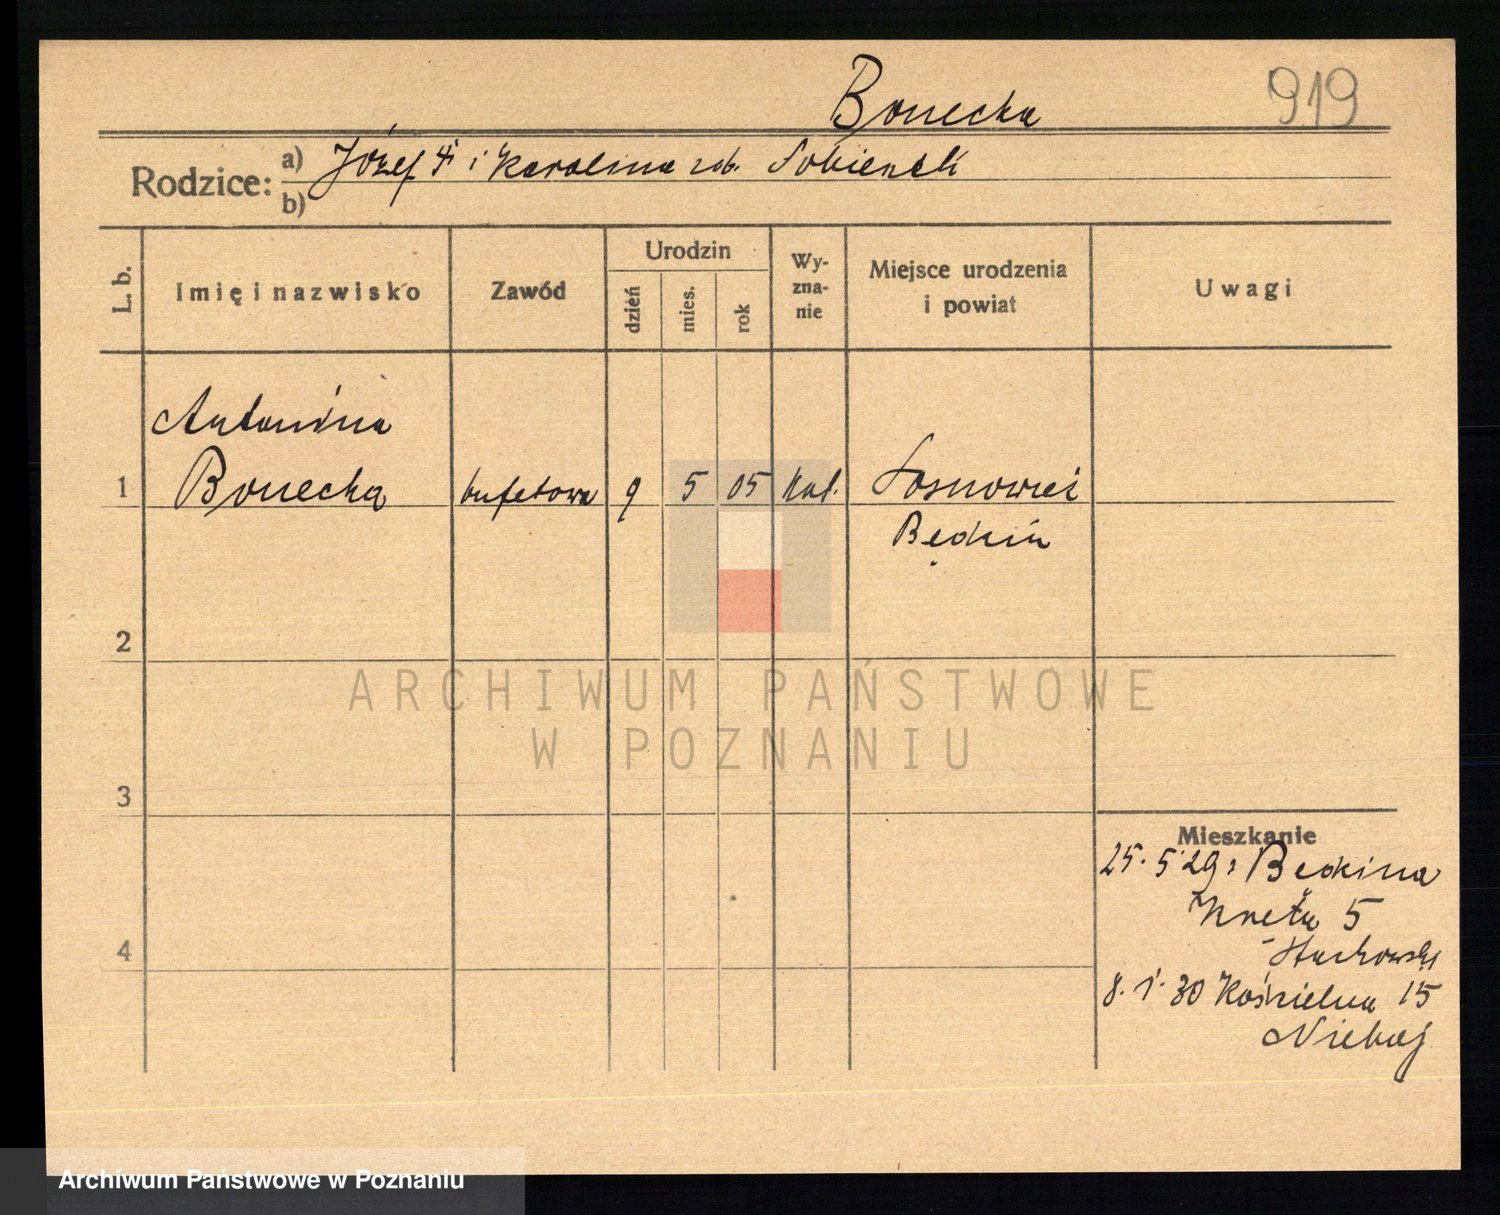 Bonecka
919
Rodzice: a) Józef i Karolina zd.
b)
L. b. Imię i nazwisko Zawód Urodzin dzień mies. rok Wyzna-nie Miejsce urodzenia i powiat Uwagi
Antonina
1 Bonecka bufetowa 9 5 05 kat. Sosnowiec
Będzin
2
ARCHIWUM PAŃSTWOWE
W POZNANIU
3
Mieszkanie
25.5.29 z Będzina
Kręta 5
4
8.1.30 Kościelna 15
Archiwum Państwowe w Poznaniu